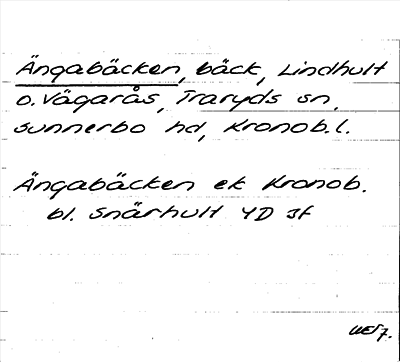 Ängabäcken, bäck, Lindhult
o. Vägarås, Traryds sn,
Sunnerbo hd, Kronob. l.
Ängabäcken ek Kronob.
bl. Snärhult 4D sf